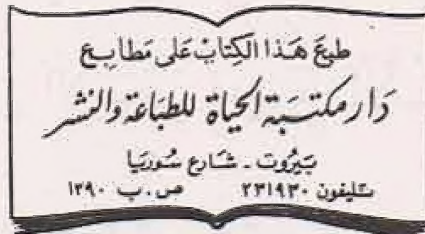 طبع هَذا الكِتابْ عَلى مَطابع
دَار مكتَبة الحيَاة للطبَاعة والنشر
بَيروت - شارع سُوريَا
تليفون ٢٣١٩٣٠ ص.ب ١٣٩٠